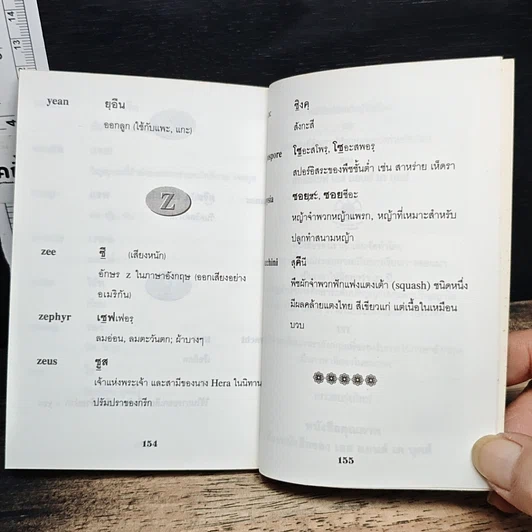 yean ยฺอีน
ออกลูก (ใช้กับแพะ, แกะ)
Z
zee ซี (เสียงหนัก)
อักษร z ในภาษาอังกฤษ (ออกเสียงอย่าง
อเมริกัน)
zephyr เซฟเฟอรฺ
ลมอ่อน, ลมตะวันตก; ผ้าบางๆ
zeus ซูส
เจ้าแห่งพระเจ้า และสามีของนาง Hera ในนิทาน
ปรัมปราของกรีก
154
ซิงคฺ
สังกะสี
spore โซอะสโพรฺ, โซอะสพอรฺ
สปอร์อิสระของพืชชั้นต่ำ เช่น สาหร่าย เห็ดรา
sia ซอยฺระ์, ซอยซือะ
หญ้าจำพวกหญ้าแพรก, หญ้าที่เหมาะสำหรับ
ปลูกทำสนามหญ้า
cchini สุคีนี
พืชผักจำพวกฟักแฟงแตงเต้า (squash) ชนิดหนึ่ง
มีผลคล้ายแตงไทย สีเขียวแก่ แต่เนื้อในเหมือน
บวบ
155